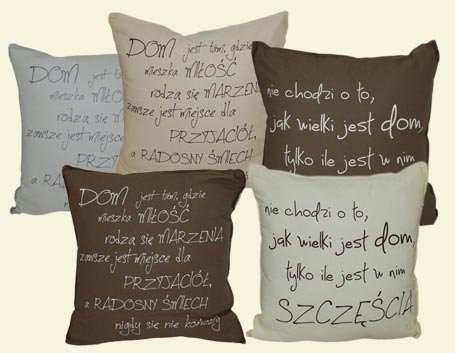 DOM jest tam, gdzie
mieszka MIŁOŚĆ
rodzą się MARZENIA
zawsze jest miejsce dla
PRZYJACIÓŁ,
a RADOSNY ŚMIECH
DOM jest tam, gdzie
mieszka MIŁOŚĆ
rodzą się MARZENIA
zawsze jest miejsce dla
PRZYJACIÓŁ,
a RADOSNY ŚMIECH
nie chodzi o to,
jak wielki jest dom,
tylko ile jest w nim
DOM jest tam, gdzie
mieszka MIŁOŚĆ
rodzą się MARZENIA
zawsze jest miejsce dla
PRZYJACIÓŁ,
a RADOSNY ŚMIECH
nigdy się nie kończy
nie chodzi o to,
jak wielki jest dom,
tylko ile jest w nim
SZCZĘŚCIA